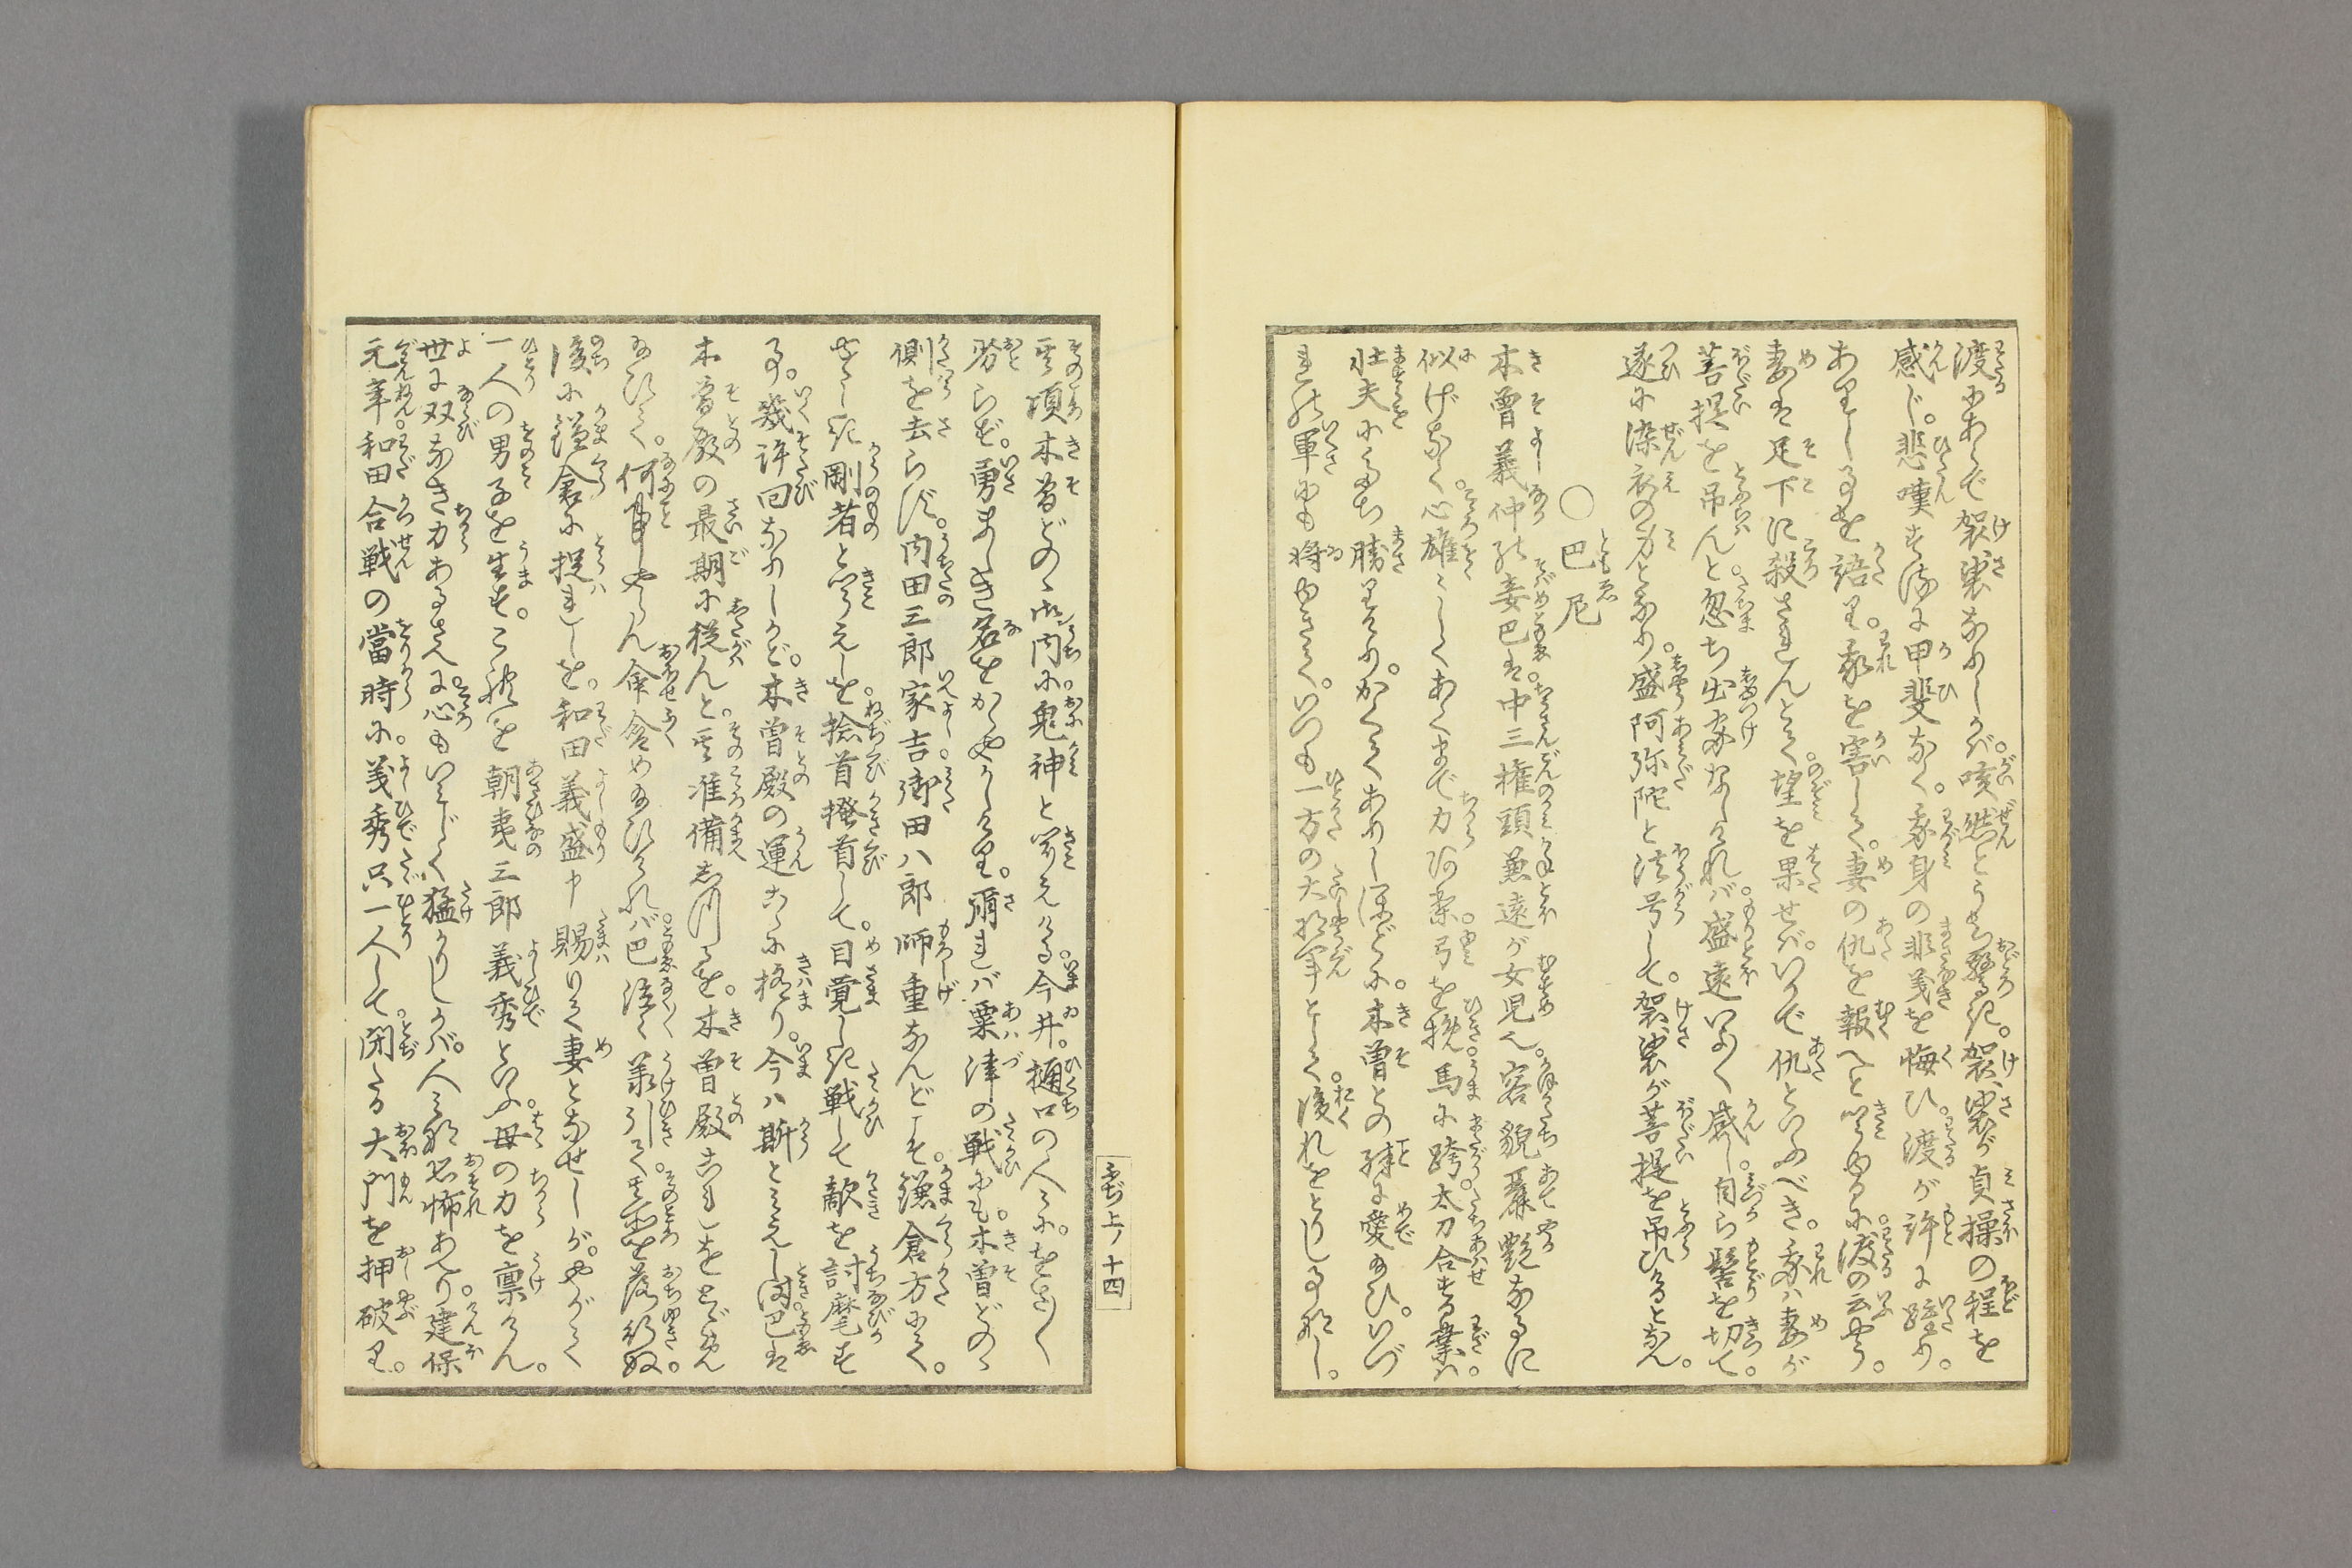 渡にあらで袈裟なりしかば。咳然とうち驚き。袈裟が貞操の程を
感じ。悲嘆すれ共甲斐なく。我身の非義を悔ひ。渡が許に踵り。
ありし事を語り。我を害して。妻の仇を報へと聞ゆるに。渡の云やう。
妻は足下に殺されんとて。望を果せば。いかで仇といふべき。我は妻が
菩提を吊んと忽ち出家なしければ。盛遠いよ〳〵感じ。自ら髻を切て。
遂に染衣の身となり。盛阿弥陀と法号して。袈裟が菩提を吊ひけるとなん。
○巴尼
木曽義仲の妾巴は。中三権頭兼遠が女児也。容貌麗艶なるに
似げなく。心雄々しくあくまで力あり。弓を挽。馬に跨。太刀合する業は。
壮夫にうち勝りけり。かくてありし程に。木曽どの殊に愛給ひ。いづ
れの軍にも将ゆきて。いつも一方の大将軍として。後れをとりし事なし。
其頃木曽どのゝ御内に。鬼神と聞えける。今井。樋口の人々に。をさ〳〵
劣らず。勇ましき名をかゞやかしけり。爾れば粟津の戦にも。木曽どのゝ
側を去らず。内田三郎家吉。御田八郎師重なんどゝて。鎌倉方にて。
剛者と聞えしを。捻首掻首して。目覚しき戦して敵を討麾す
事。幾許回なりしかど。木曽殿の運こゝに極り。今は斯とみえし時。巴は
木曽殿の最期に従んと。其准備しけるを。木曽殿これをとゞめ
給ひて。何事やらん命含め給ひければ。巴泣々義引て其所を落行ぬ。
後に鎌倉に捉れしを。和田義盛申賜りて妻となせしが。やがて
一人の男子を生す。これを朝夷三郎義秀といふ。母の力を禀けん。
世に双なき力あるさへに。心もいみじく猛かりしかば。人みな恐怖あへり。建保
元年。和田合戦の當時に。義秀只一人して。閉たる大門を押破り。
ゑぢ上ノ十四